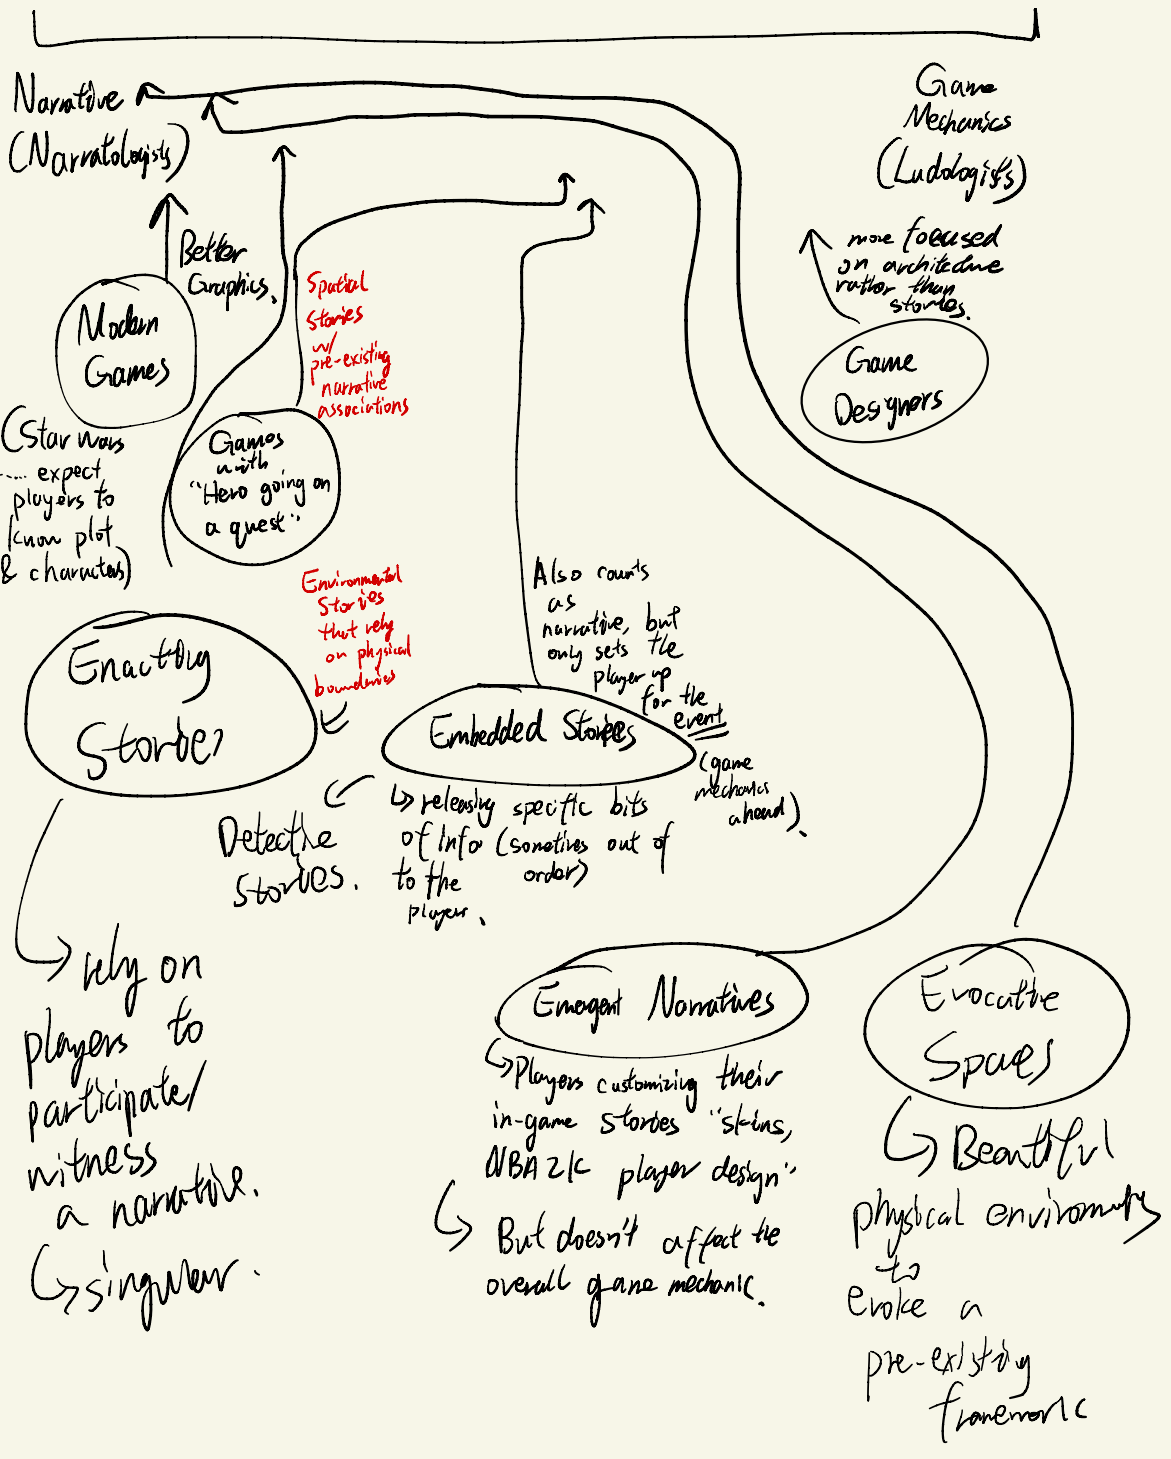 Narrative
(Narratologists)
Game
Mechanics
(Ludologists)
Better
Graphics.
more focused
on architecture
rather than
stories.
Modern
Games
(Star Wars
..... expect
players to
know plot
& characters)
Spatial
Stories
w/
pre-existing
narrative
associations
Games
with
"Hero going on
a quest"
Game
Designers
Environmental
Stories
that rely
on physical
boundaries
Also counts
as
narrative, but
only sets the
player up
for the
event
(game
mechanics
ahead).
Enacting
Stories
Embedded Stories
releasing specific bits
of Info (sometimes out of
order)
to the
player.
Detective
Stories.
rely on
players to
participate/
witness
a narrative.
singular.
Emergent Narratives
Players customizing their
in-game stories "skins,
NBA 2K player design"
But doesn't affect the
overall game mechanic.
Evocative
Spaces
Beautiful
physical environments
to
evoke a
pre-existing
framework